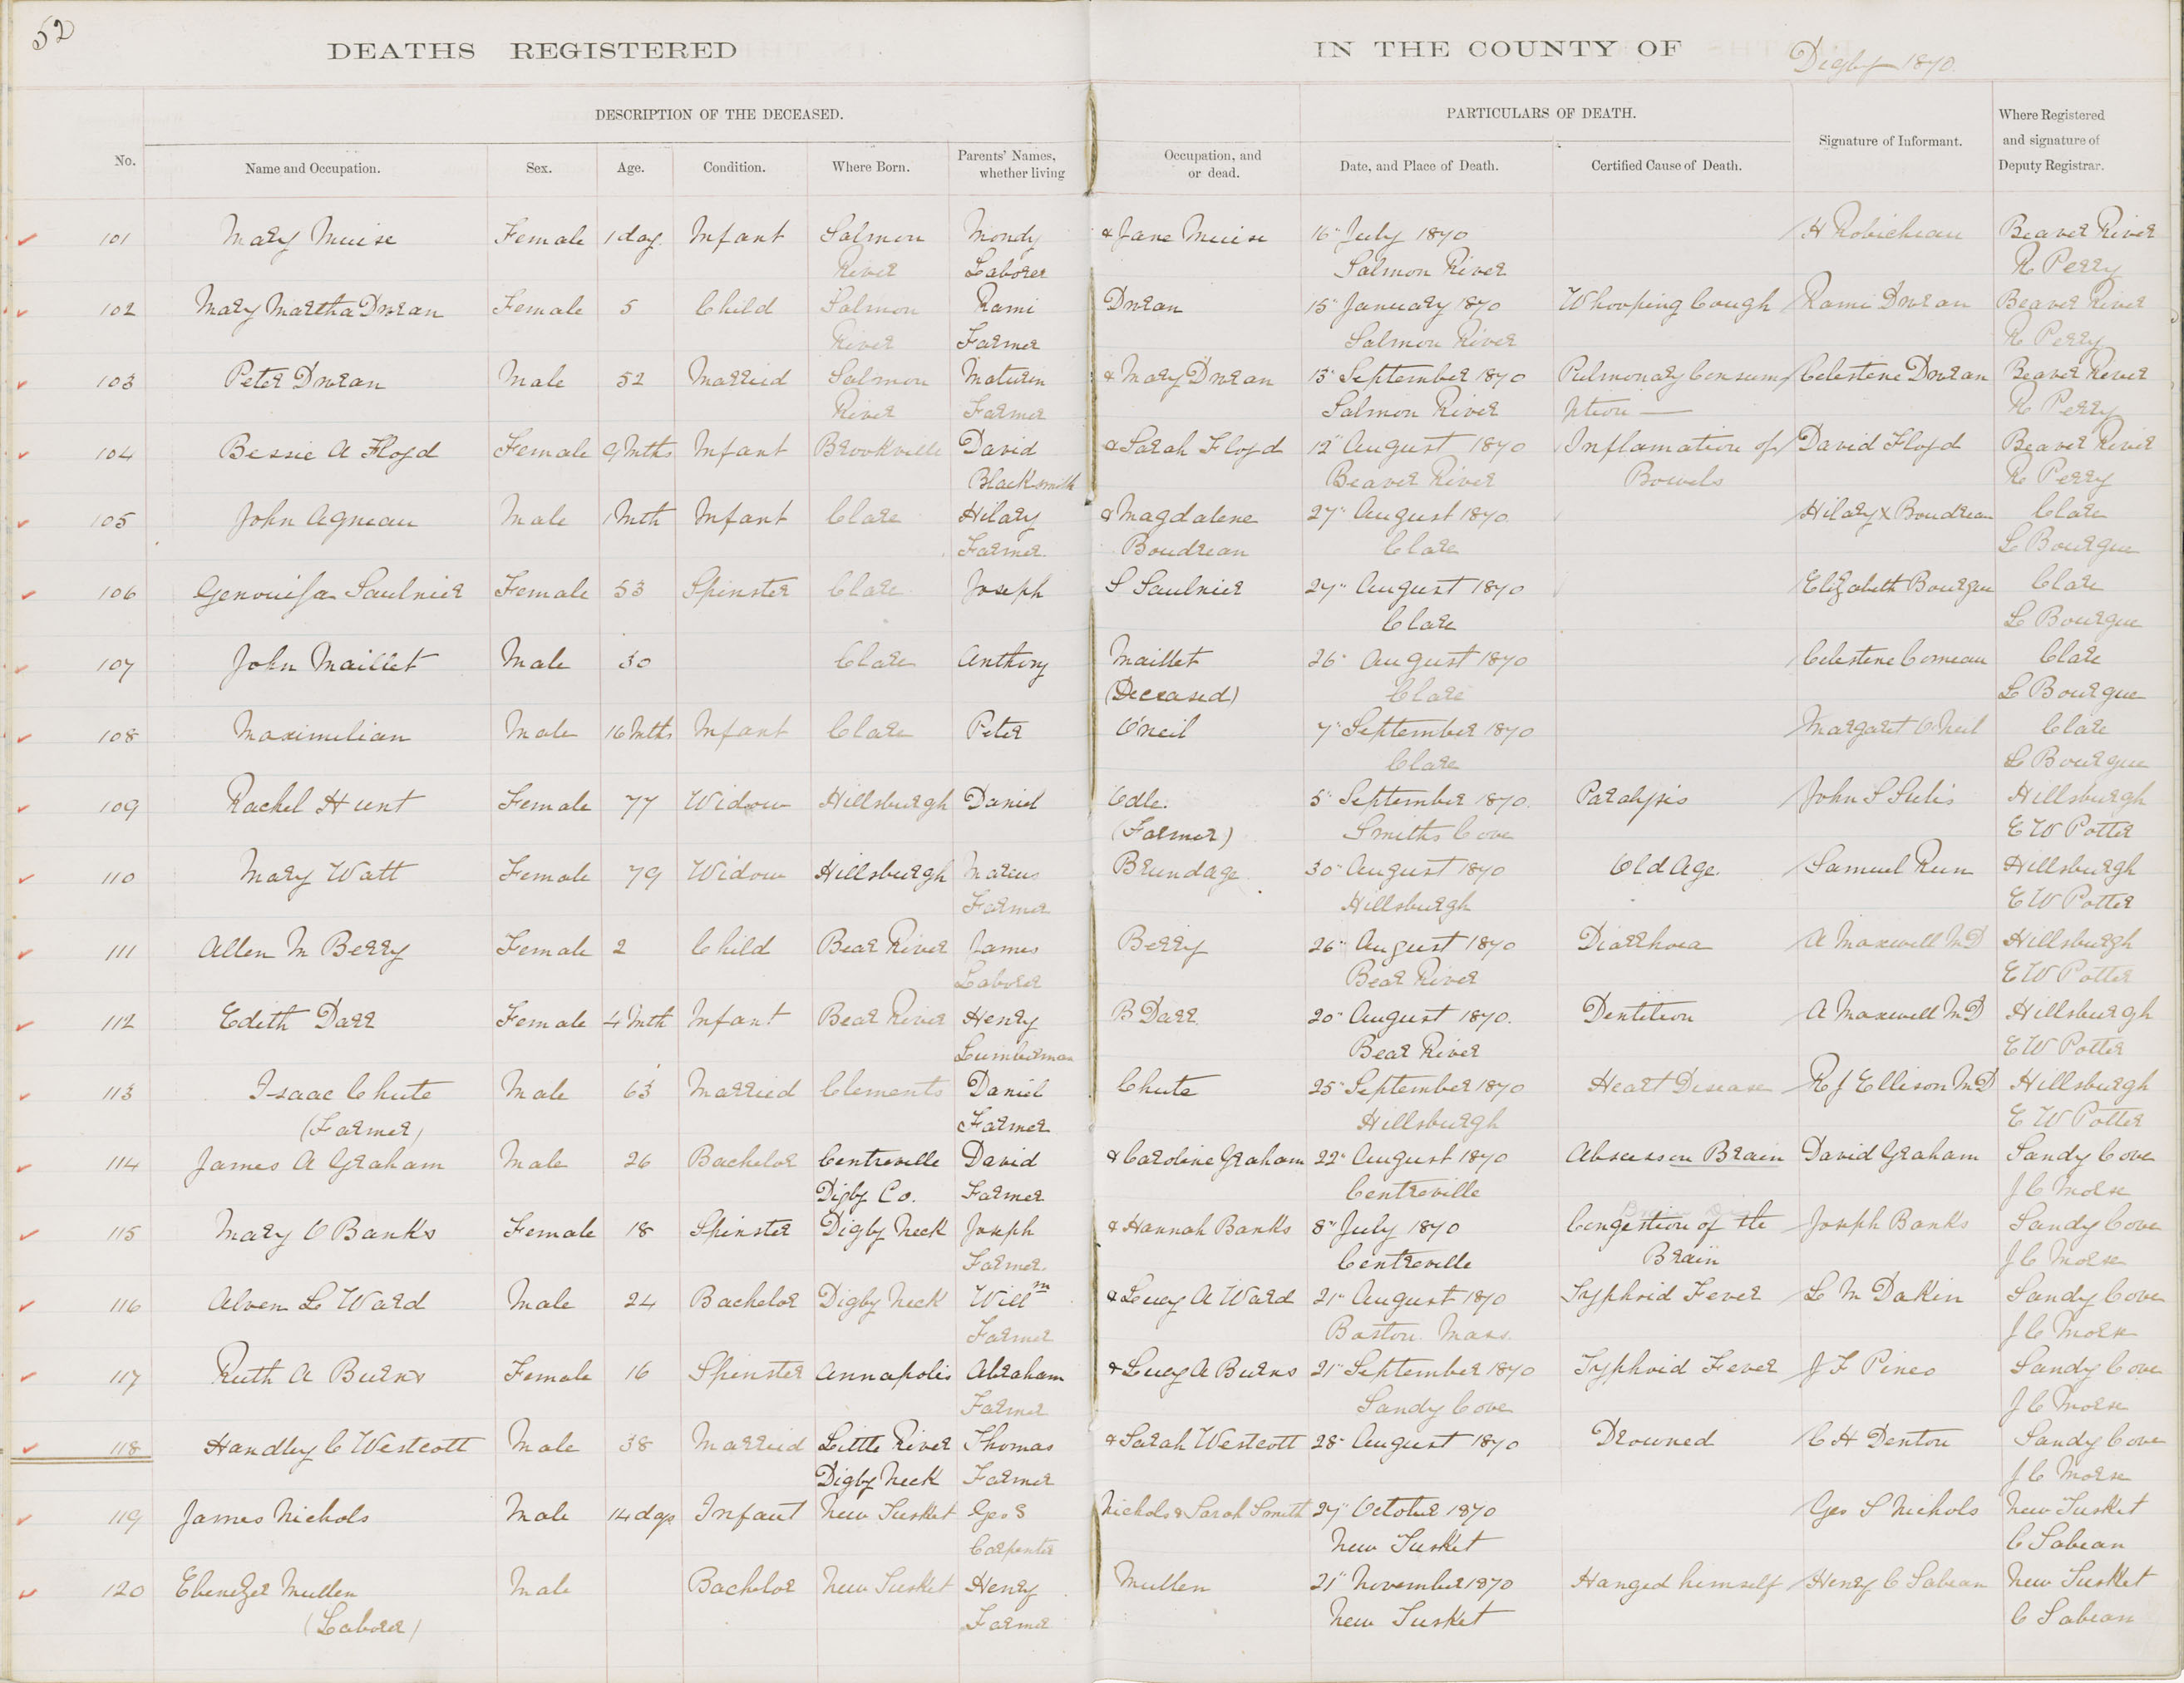 52
DEATHS REGISTERED IN THE COUNTY OF Digby 1870.
DESCRIPTION OF THE DECEASED. PARTICULARS OF DEATH. Signature of Informant. Where Registered and signature of Deputy Registrar.
No. Name and Occupation. Sex. Age. Condition. Where Born. Parents' Names, whether living Occupation, and or dead. Date, and Place of Death. Certified Cause of Death.
101 Mary Muise Female 1 day. Infant Salmon Mondy & Jane Muise 16" July 1870 H Robicheau Beaver River
River Laborer Salmon River R Perry
102 Mary Martha Doran Female 5 Child Salmon Rami Doran 15" January 1870 Whooping Cough Rami Doran Beaver River
River Farmer Salmon River R Perry
103 Peter Doran Male 52 Married Salmon Maturin & Mary Doran 13" September 1870 Pulmonary Consum Celestine Doran Beaver River
River Farmer Salmon River ption — R Perry
104 Bessie A Floyd Female 9 Mths Infant Brookville David & Sarah Floyd 12" August 1870 Inflamation of David Floyd Beaver River
Blacksmith Beaver River Bowels R Perry
105 John Agneau Male 1 Mth Infant Clare Hilary & Magdalene 27" August 1870. Hilary X Boudreau Clare
Farmer. Boudreau Clare L Bourque
106 Genouisa Saulnier Female 53 Spinster Clare Joseph S Saulnier 27" August 1870 Elizabeth Bourque Clare
Clare L Bourque
107 John Maillet Male 30 Clare Anthony Maillet 26" August 1870 Celestine Comeau Clare
(Deceased) Clare L Bourque
108 Maximilian Male 16 Mths Infant Clare Peter O'neil 7" September 1870 Margaret O'Neil Clare
Clare L Bourque
109 Rachel Hunt Female 77 Widow Hillsburgh Daniel Odle. 5" September 1870. Paralysis John S Sulis Hillsburgh
(Farmer) Smiths Cove E W Potter
110 Mary Watt Female 79 Widow Hillsburgh Marcus Brundage 30" August 1870 Old Age. Samuel Hillsburgh
Farmer Hillsburgh E W Potter
111 Allen M Berry Female 2 Child Bear River James Berry 26" August 1870 Diarrhoea A Maxwell MD Hillsburgh
Laborer Bear River E W Potter
112 Edith Darr Female 4 Mth Infant Bear River Henry B Darr. 20" August 1870. Dentition A Maxwell MD Hillsburgh
Lumberman Bear River E W Potter
113 Isaac Chute Male 63 Married Clements Daniel Chute 25" September 1870 Heart Disease R J Ellison MD Hillsburgh
(Farmer) Farmer Hillsburgh E W Potter
114 James A Graham Male 26 Bachelor Centreville David & Caroline Graham 22" August 1870 Abscess on Brain David Graham Sandy Cove
Digby Co. Farmer Centreville J C Morse
115 Mary O Banks Female 18 Spinster Digby Neck Joseph & Hannah Banks 8" July 1870 Congestion of the Joseph Banks Sandy Cove
Farmer. Centreville Brain J C Morse
116 Alven L Ward Male 24 Bachelor Digby Neck Willm & Lucy A Ward 21" August 1870 Typhoid Fever L M Dakin Sandy Cove
Farmer Boston. Mass. J C Morse
117 Ruth A Burns Female 16 Spinster Annapolis Abraham & Lucy A Burns 21" September 1870 Typhoid Fever J F Pineo Sandy Cove
Farmer Sandy Cove J C Morse
118 Handley C Westcott Male 38 Married Little River Thomas & Sarah Westcott 28" August 1870 Drowned C H Denton Sandy Cove
Digby Neck Farmer J C Morse
119 James Nichols Male 14 days Infant New Tusket Geo S Nichols & Sarah Smith 27" October 1870 Geo S Nichols New Tusket
Carpenter New Tusket C Sabean
120 Ebenezer Mullen Male Bachelor New Tusket Henry Mullen 21" November 1870 Hanged himself Henry C Sabean New Tusket
(Laborer) Farmer New Tusket C Sabean